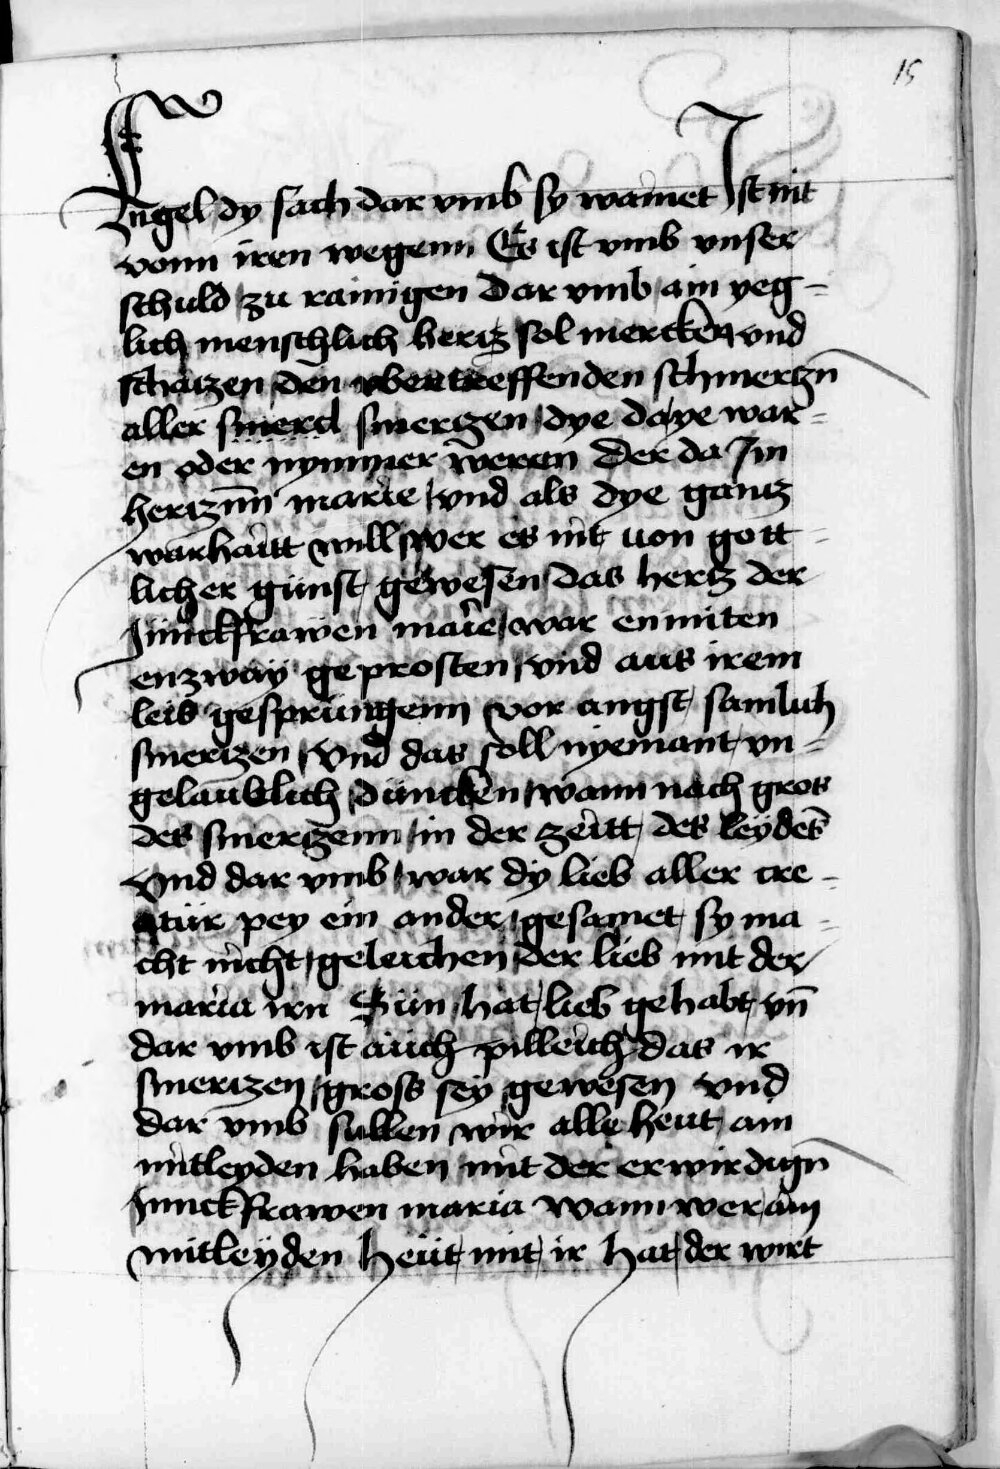 15
Engel dy sach dar vmb sy wainet Ist nit
vonn iren wegenn Es ist vmb vnser
schuld zu rainigen Dar vmb ain yeg=
lich menschlich hertz sol mercken vnd
schatzen den vbertreffenden schmertzn̄
aller smercl smertzen dye do ye war=
en oder nymmer weren Der da Im
hertznn̄ marie vnd als dye gantz
warhaitt will wer es nit von gott=
licher günst gewesen das hertz der
Junckfrawen marie war enmiten
enzway geprosten vnd aus irem
leib gesprungenn vor angst samlich
smertzen Vnd das soll nyemant vn=
gelaublich düncken wann nach gros
des smertzenn in der zeitt des leydes
Vnd dar vmb war dy lieb aller cre=
atür pey ein ander gesamet sy ma=
cht nicht geleichen der lieb mit der
maria irn Sün hat lieb gehabt vn̄
dar vmb ist auch pilleich das ir
smertzen gross sey gewesen vnd
dar vmb sullen wir alle heut ain
mitleyden haben mit der erwirdign̄
Junckfrawen maria wann wer ain
mitleyden heüt mit ir hat der wirt